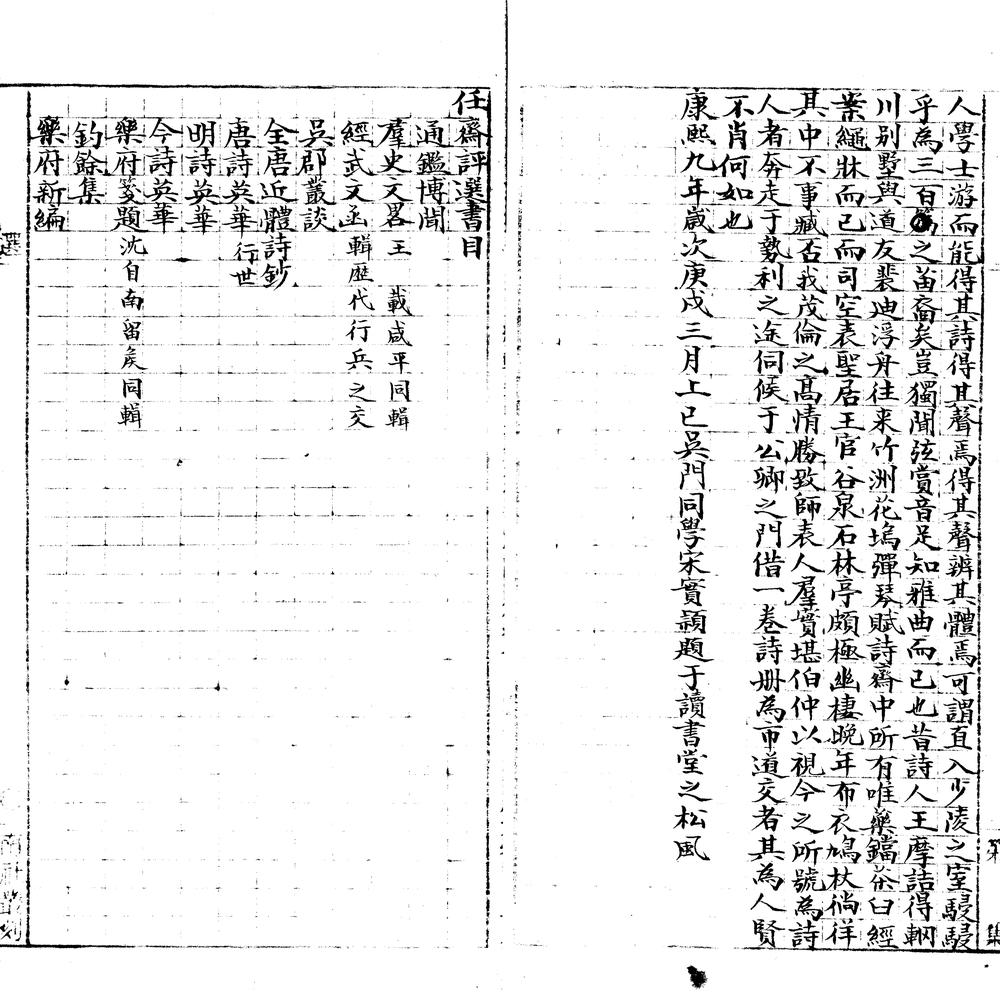 人學士游而能得其詩得其聲焉得其聲辨其體焉可謂直入少陵之室駸駸
乎為三百篇之苗裔矣豈獨聞弦賞音足知雅曲而已也昔詩人王摩詰得輞
川別墅與道友裴迪浮舟往来竹洲花塢彈琴賦詩齋中所有唯藥鐺茶臼經
案繩牀而已而司空表聖居王官谷泉石林亭頗極幽棲晚年布衣鳩杖徜徉
其中不事臧否我茂倫之髙情勝致師表人羣實堪伯仲以視今之所號為詩
人者奔走于勢利之途伺候于公卿之門借一卷詩册為市道交者其為人賢
不肖何如也
康熙九年歲次庚戌三月上巳吳門同學宋實頴題于讀書堂之松風
任齋評選書目
通鑑博聞
羣史文畧 王載咸平同輯
經武文函 輯歷代行兵之文
吳郡叢談
全唐近體詩鈔
唐詩英華 行世
明詩英華
今詩英華
樂府菱題 沈自南留矦同輯
釣餘集
樂府新編